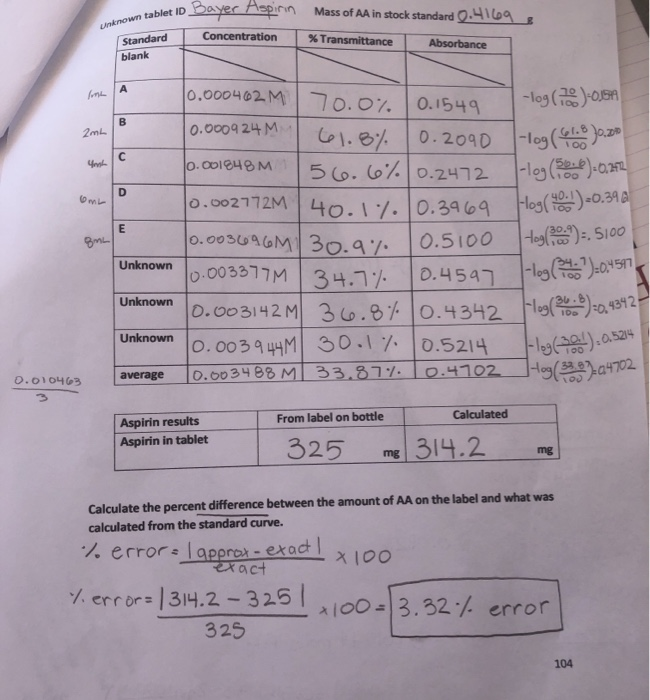 Unknown tablet ID Bayer Aspirin Mass of AA in stock standard 0.4169 g
Standard Concentration % Transmittance Absorbance
blank
1mL A 0.000462M 70.0% 0.1549 -log(70/100)=0.1549
2mL B 0.000924M 61.8% 0.2090 -log(61.8/100)0.2090
4mL C 0.001848M 56.6% 0.2472 -log(56.6/100)=0.2472
6mL D 0.002772M 40.1% 0.3969 -log(40.1/100)=0.39
8mL E 0.003696M 30.9% 0.5100 -log(30.9/100)=.5100
Unknown 0.003377M 34.7% 0.4597 -log(34.7/100)=0.4597
Unknown 0.003142M 36.8% 0.4342 -log(36.8/100)=0.4342
Unknown 0.003944M 30.1% 0.5214 -log(30.1/100)=0.5214
average 0.003488M 33.87% 0.4702 -log(33.87/100)=0.4702
0.010463
3
Aspirin results From label on bottle Calculated
Aspirin in tablet 325 mg 314.2 mg
Calculate the percent difference between the amount of AA on the label and what was
calculated from the standard curve.
% error = |approx - exact| x 100
exact
% error = |314.2 - 325| x100 = 3.32% error
325
104